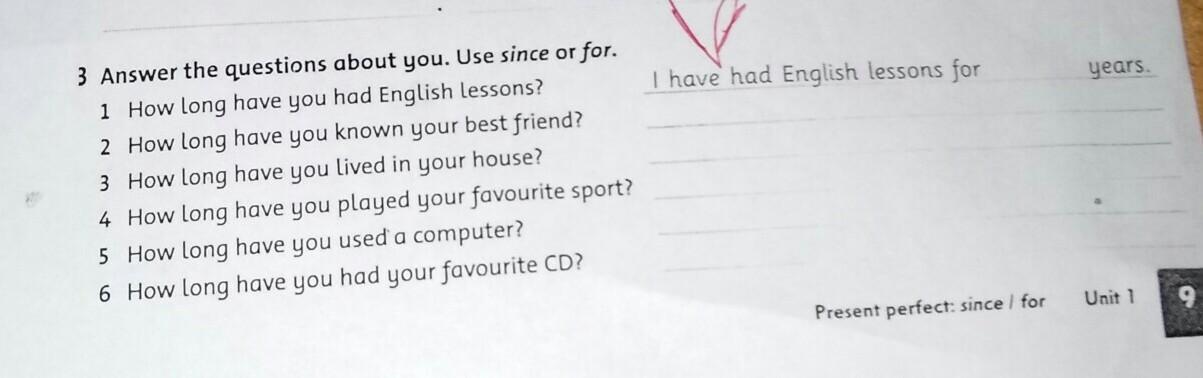 3 Answer the questions about you. Use since or for.
1 How long have you had English lessons? I have had English lessons for years.
2 How long have you known your best friend?
3 How long have you lived in your house?
4 How long have you played your favourite sport?
5 How long have you used a computer?
6 How long have you had your favourite CD?
Present perfect: since / for Unit 1 9